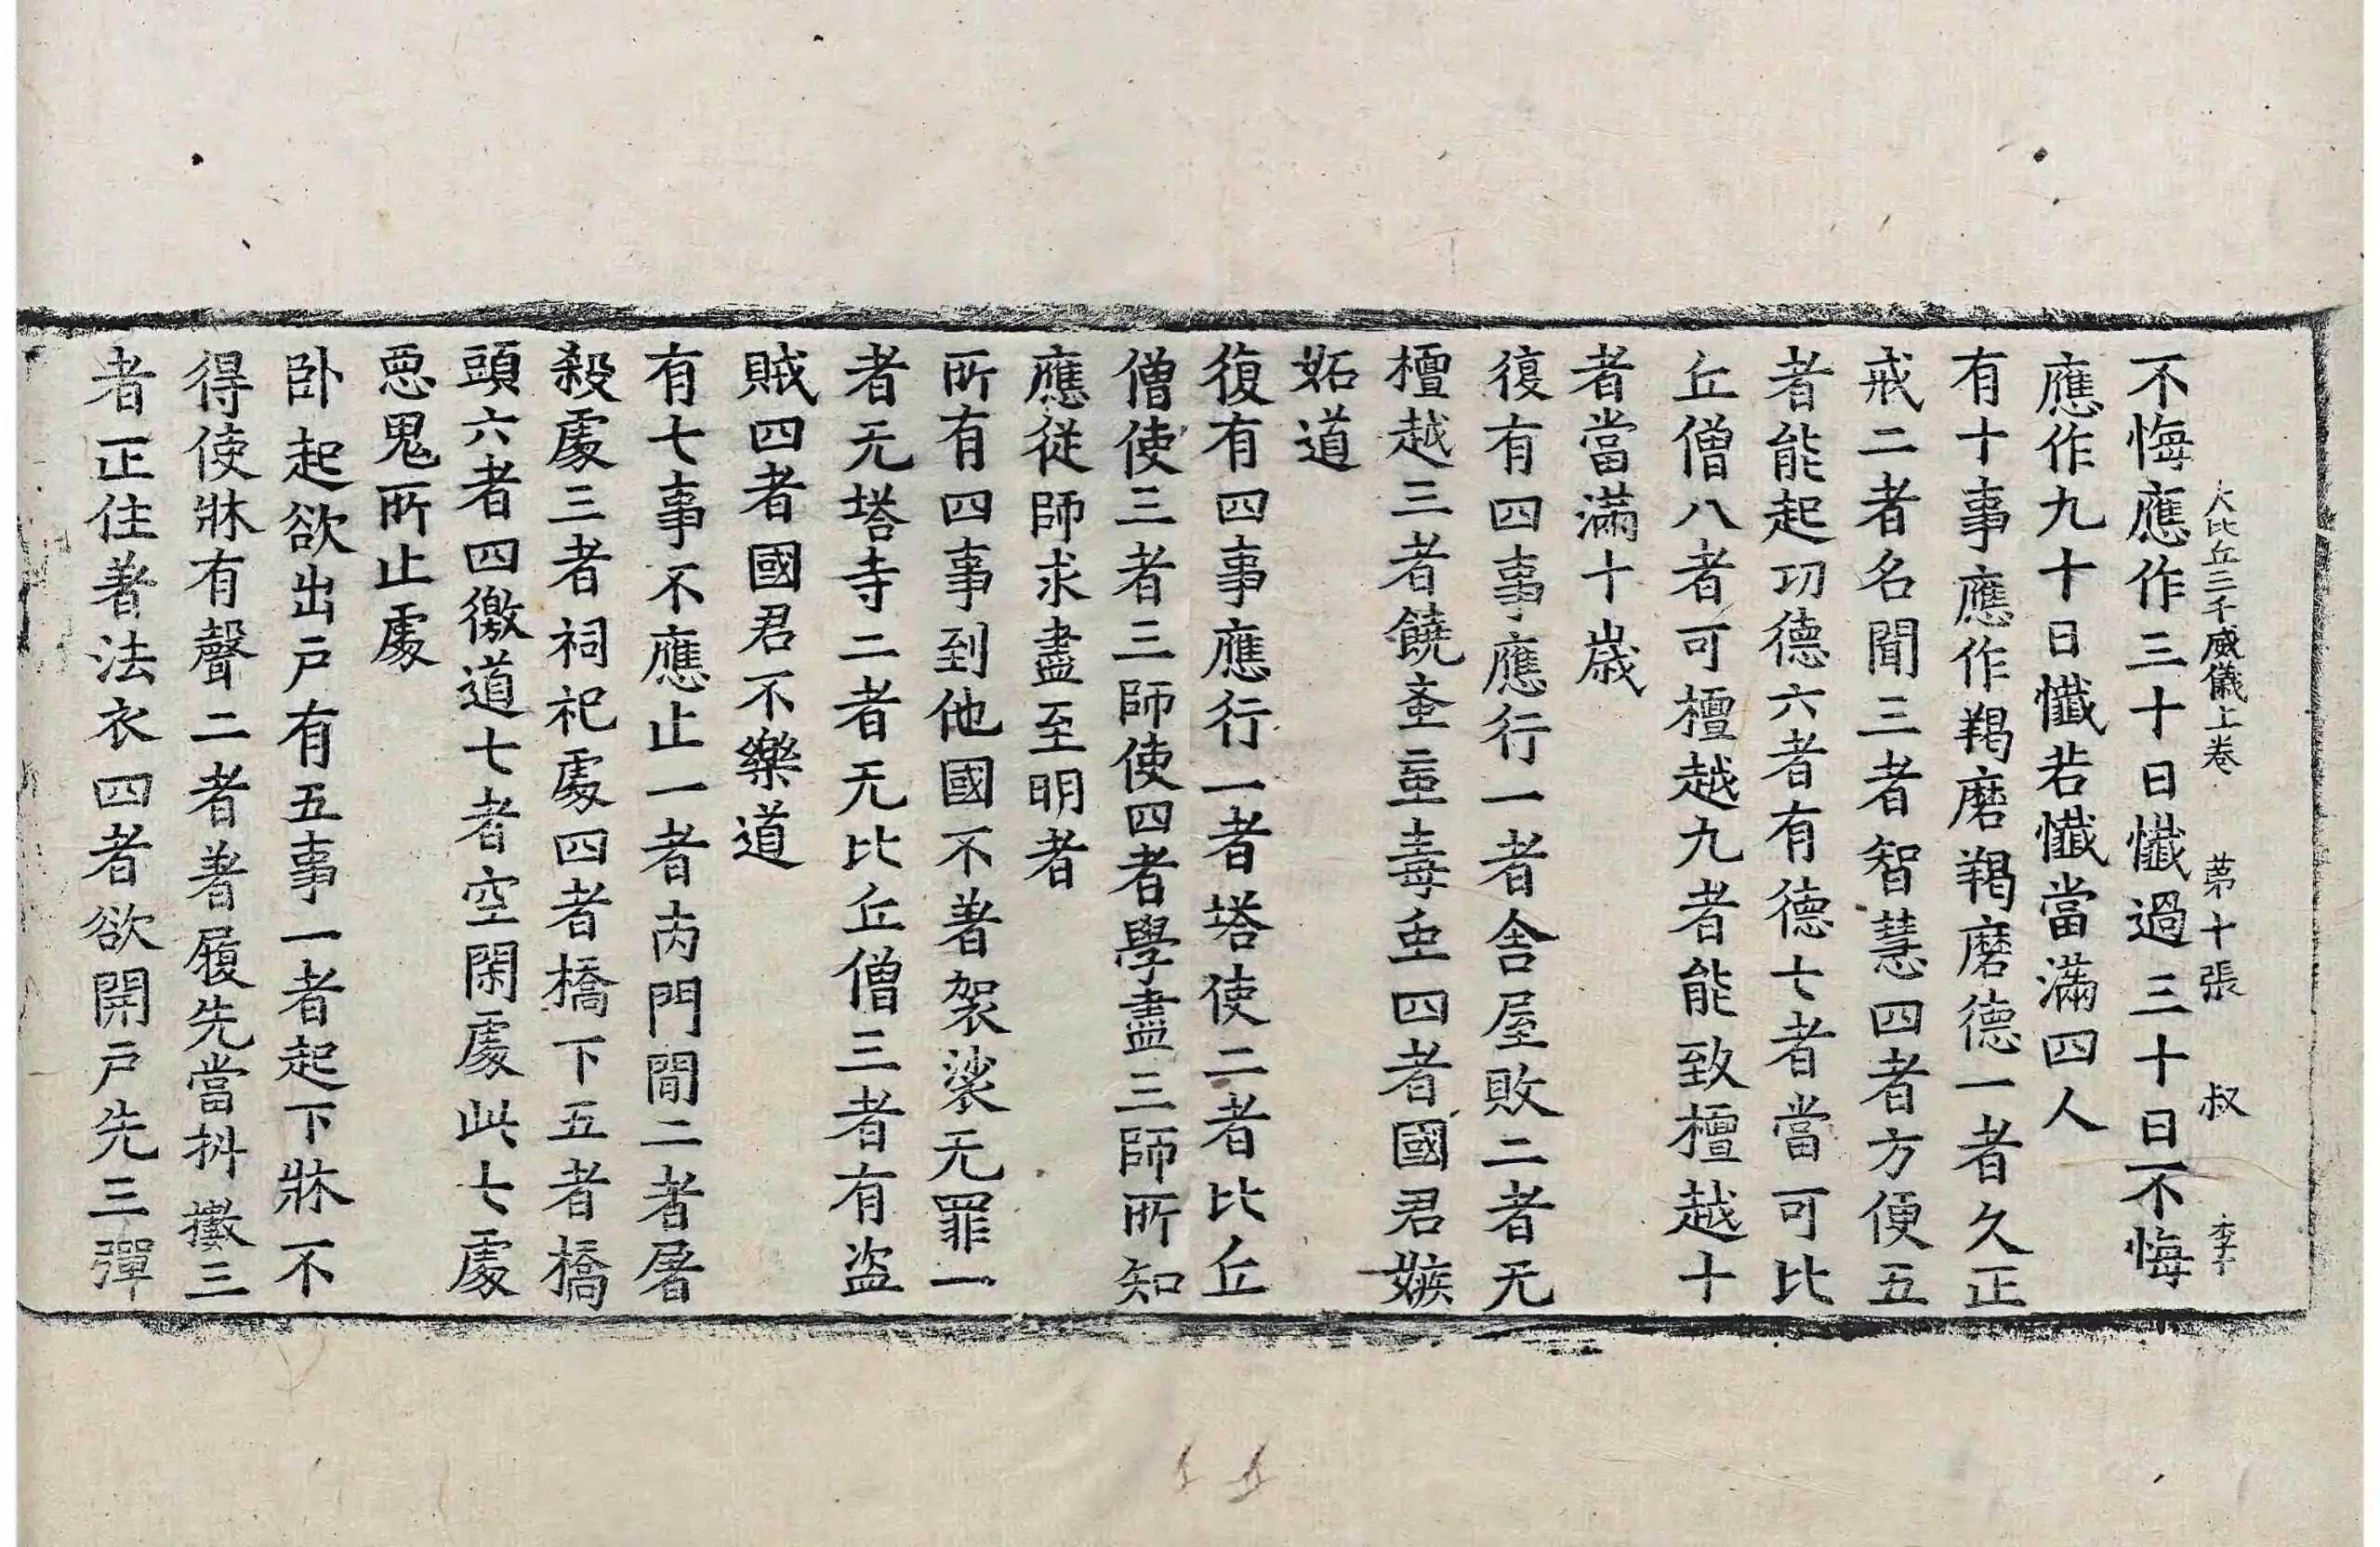 大比丘三千威儀上卷 苐十張 叔 李千
不悔應作三十日懺過三十日不悔
應作九十日懺若懺當滿四人
有十事應作羯磨羯磨德一者久正
戒二者名聞三者智慧四者方便五
者能起功德六者有德七者當可比
丘僧八者可檀越九者能致檀越十
者當滿十歲
復有四事應行一者舍屋敗二者无
檀越三者饒𧉮𧈫毒虫四者國君嫉
妬道
復有四事應行一者塔使二者比丘
僧使三者三師使四者學盡三師所知
應従師求盡至明者
所有四事到他國不著袈裟无罪一
者无塔寺二者无比丘僧三者有盜
賊四者國君不樂道
有七事不應止一者內門閒二者屠
殺處三者祠祀處四者橋下五者橋
頭六者四徼道七者空閑處此七處
惡鬼所止處
卧起欲出戶有五事一者起下牀不
得使牀有聲二者著履先當抖擻三
者正住著法衣四者欲開戶先三彈